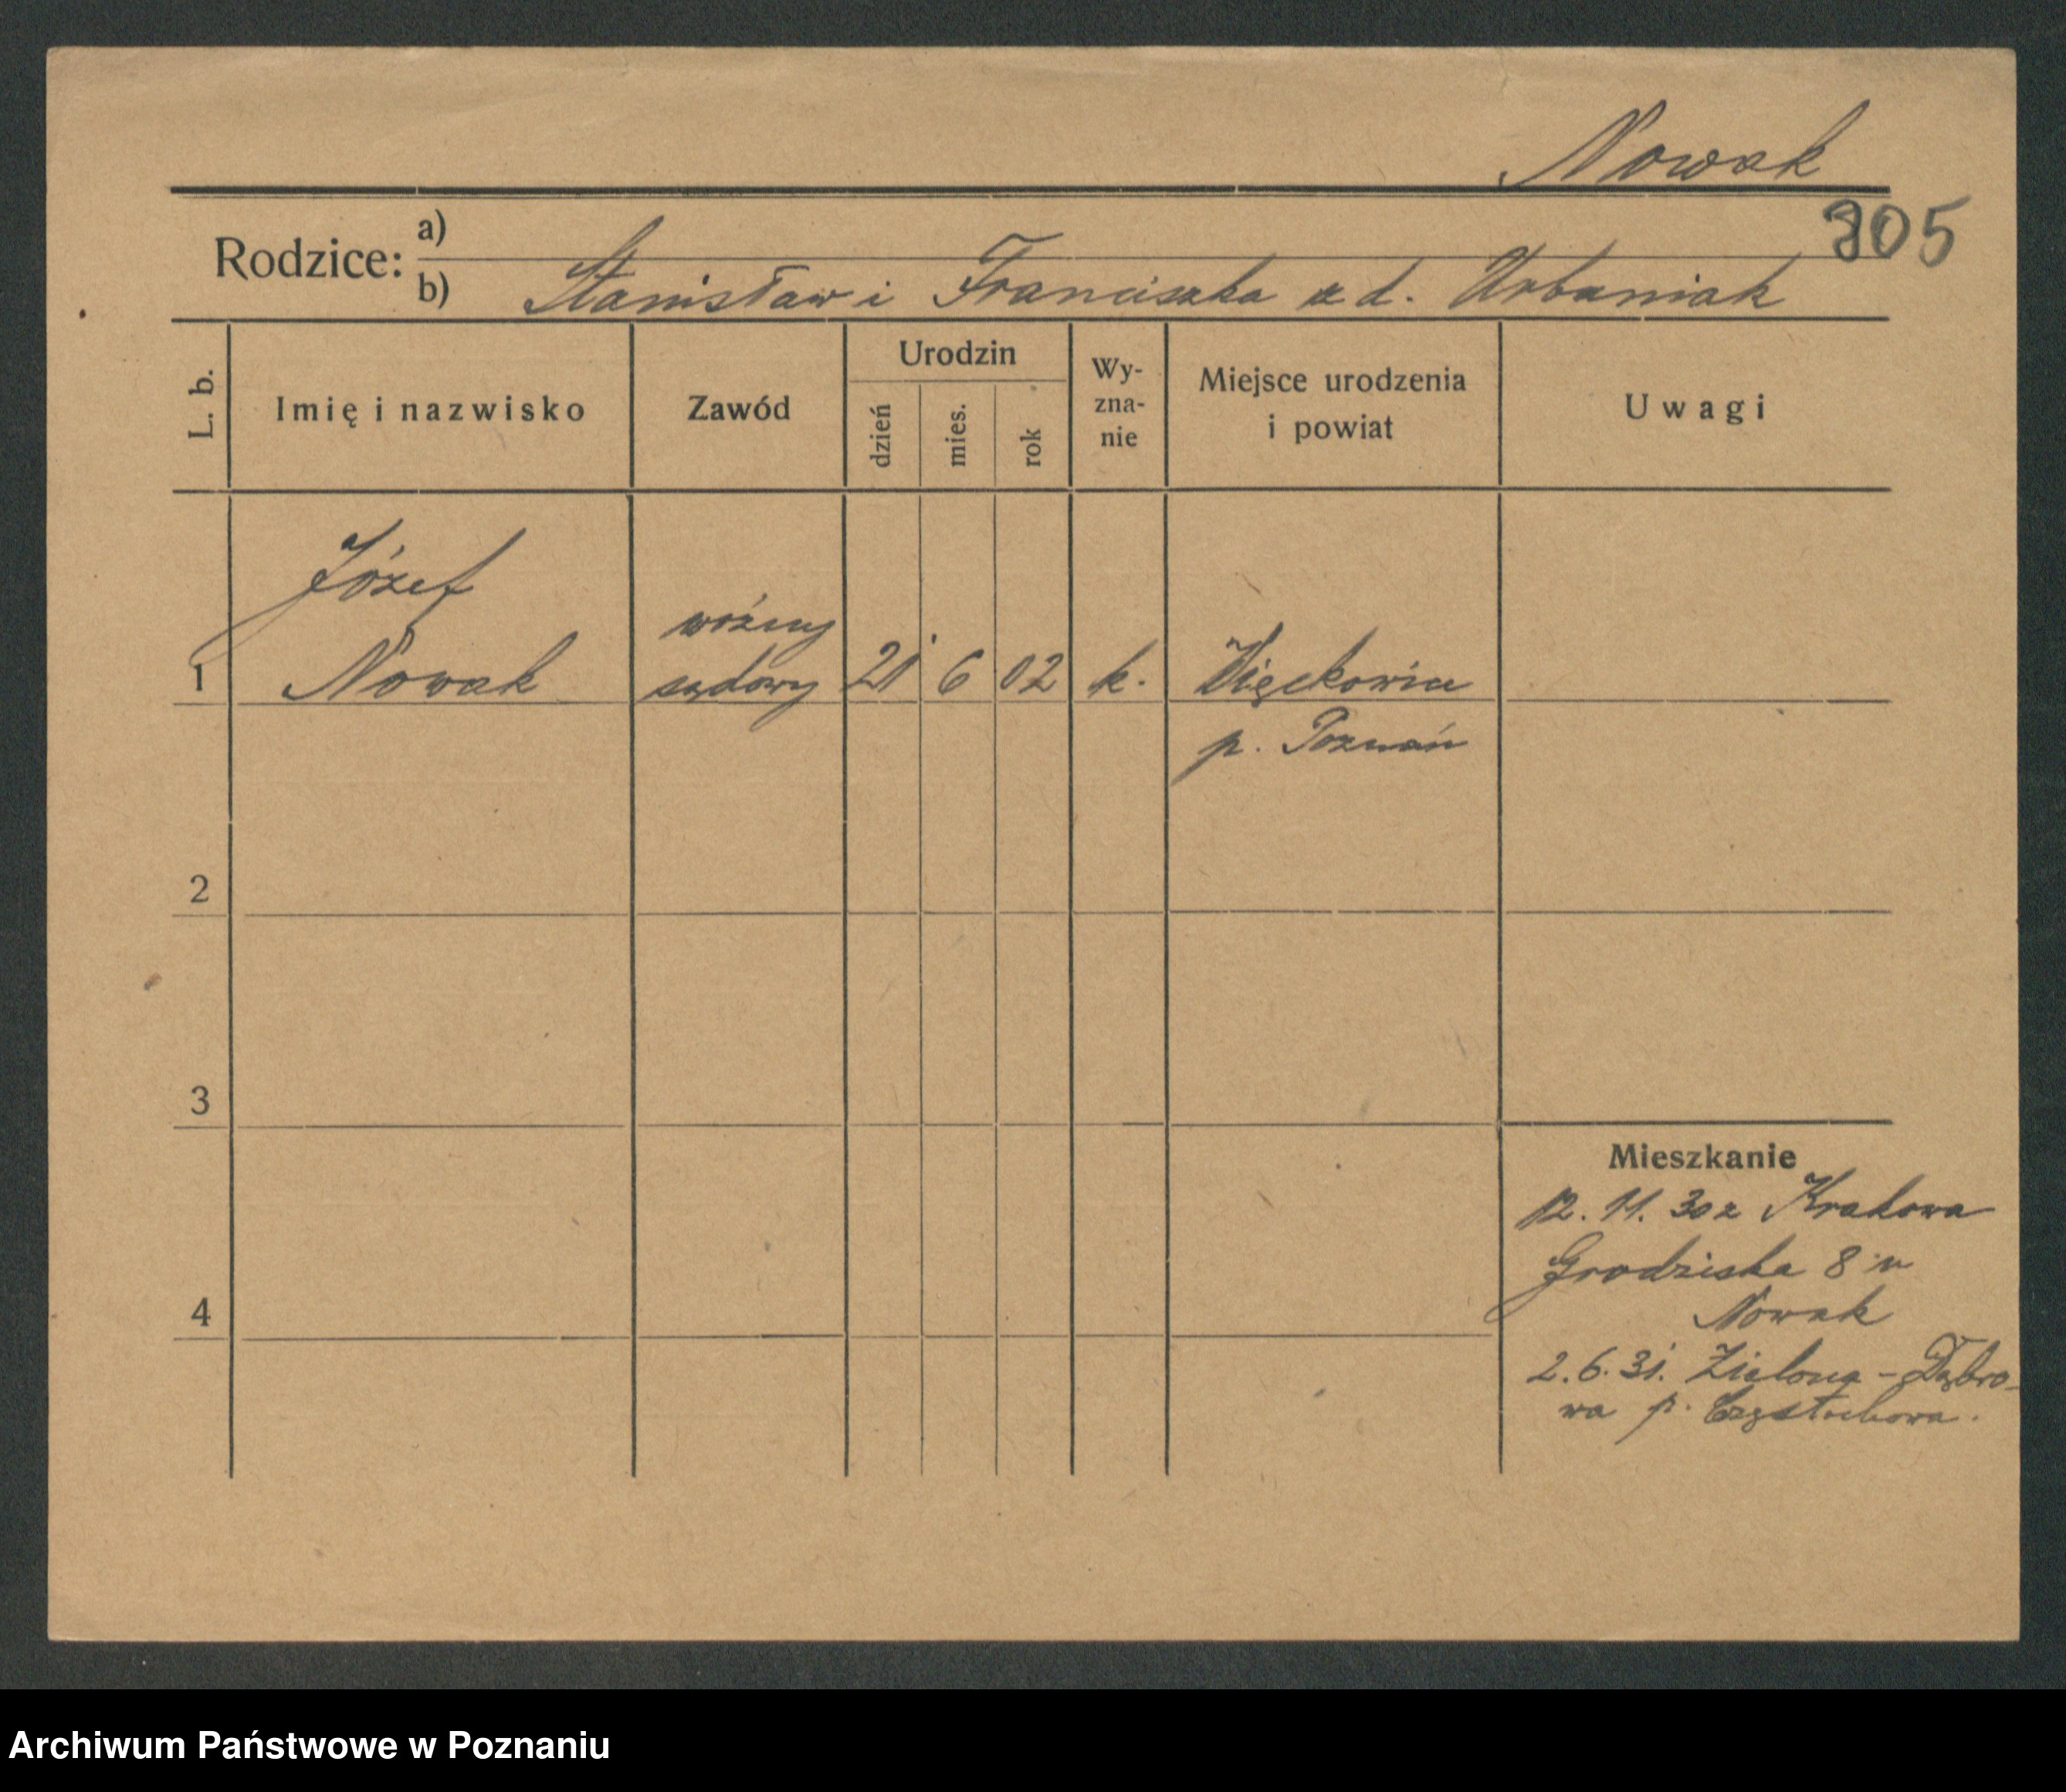 Nowak
805
Rodzice:
a)
b) Stanisław i Franciszka z d. Urbaniak
L. b.
Imię i nazwisko
Zawód
Urodzin
dzień
mies.
rok
Wy-
zna-
nie
Miejsce urodzenia
i powiat
Uwagi
Józef
woźny
1 Nowak sądowy 21 6 02 k. Więckowice
p. Poznań
2
3
Mieszkanie
12. 11. 30 z Krakowa
Grodziska 8 u
4
Nowak
2. 6. 31. Zielona - Dąbro-
wa p. Częstochowa.
Archiwum Państwowe w Poznaniu